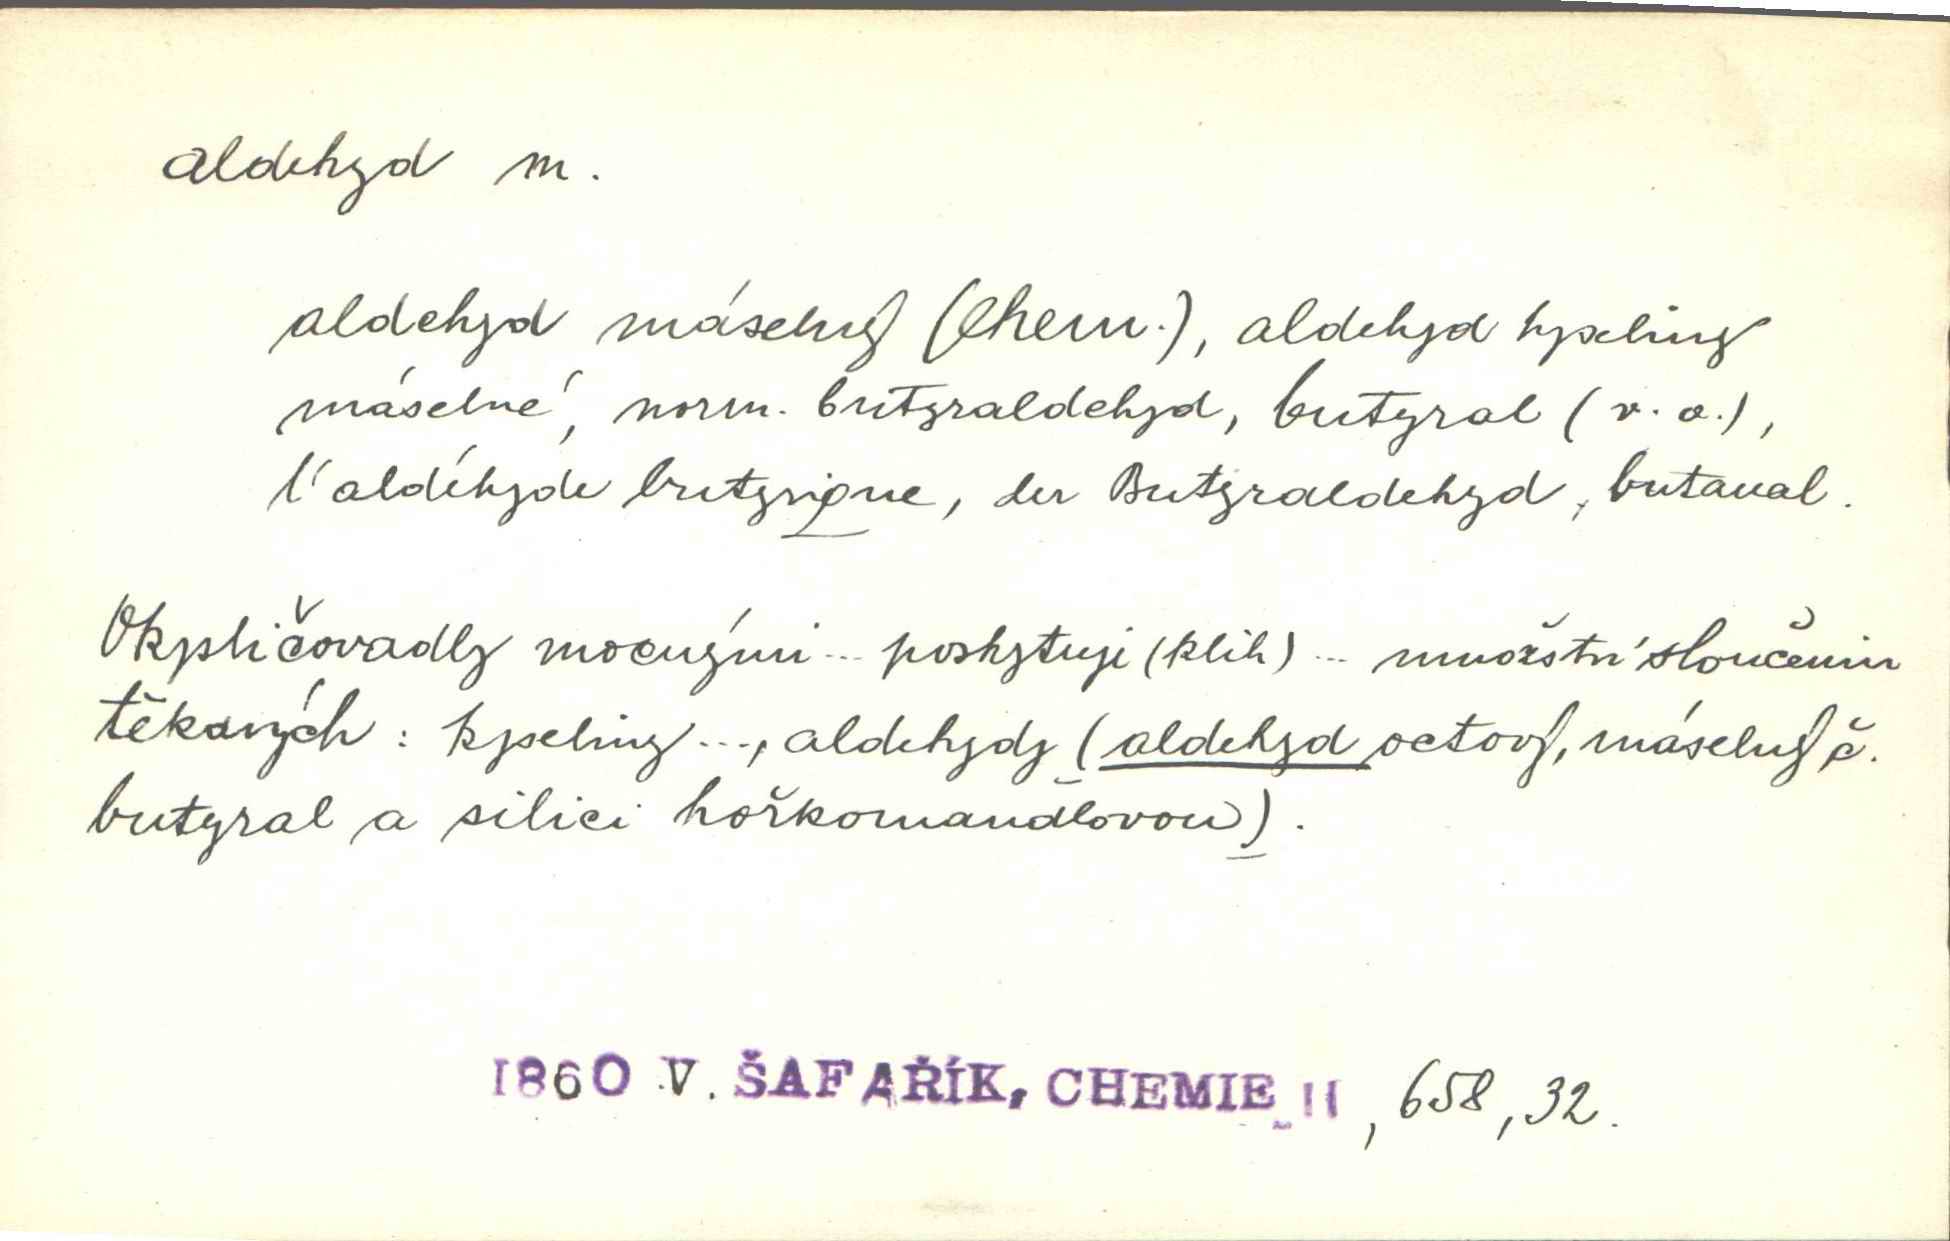 aldehyd m.
aldehyd máselný (Chem.), aldehyd kyseliny
máselné, norm. butyraldehyd, butyral (v. a.),
l'aldéhyde butyrique, der Butyraldehyd, butanal.
Okysličovadly mocnými ... poskytuje (klih) ... množství sloučenin
těkavých: kyseliny ..., aldehydy (aldehyd octový, máselný č.
butyral a silici hořkomandlovou).
1860 V. ŠAFAŘÍK, CHEMIE II, 658, 32.